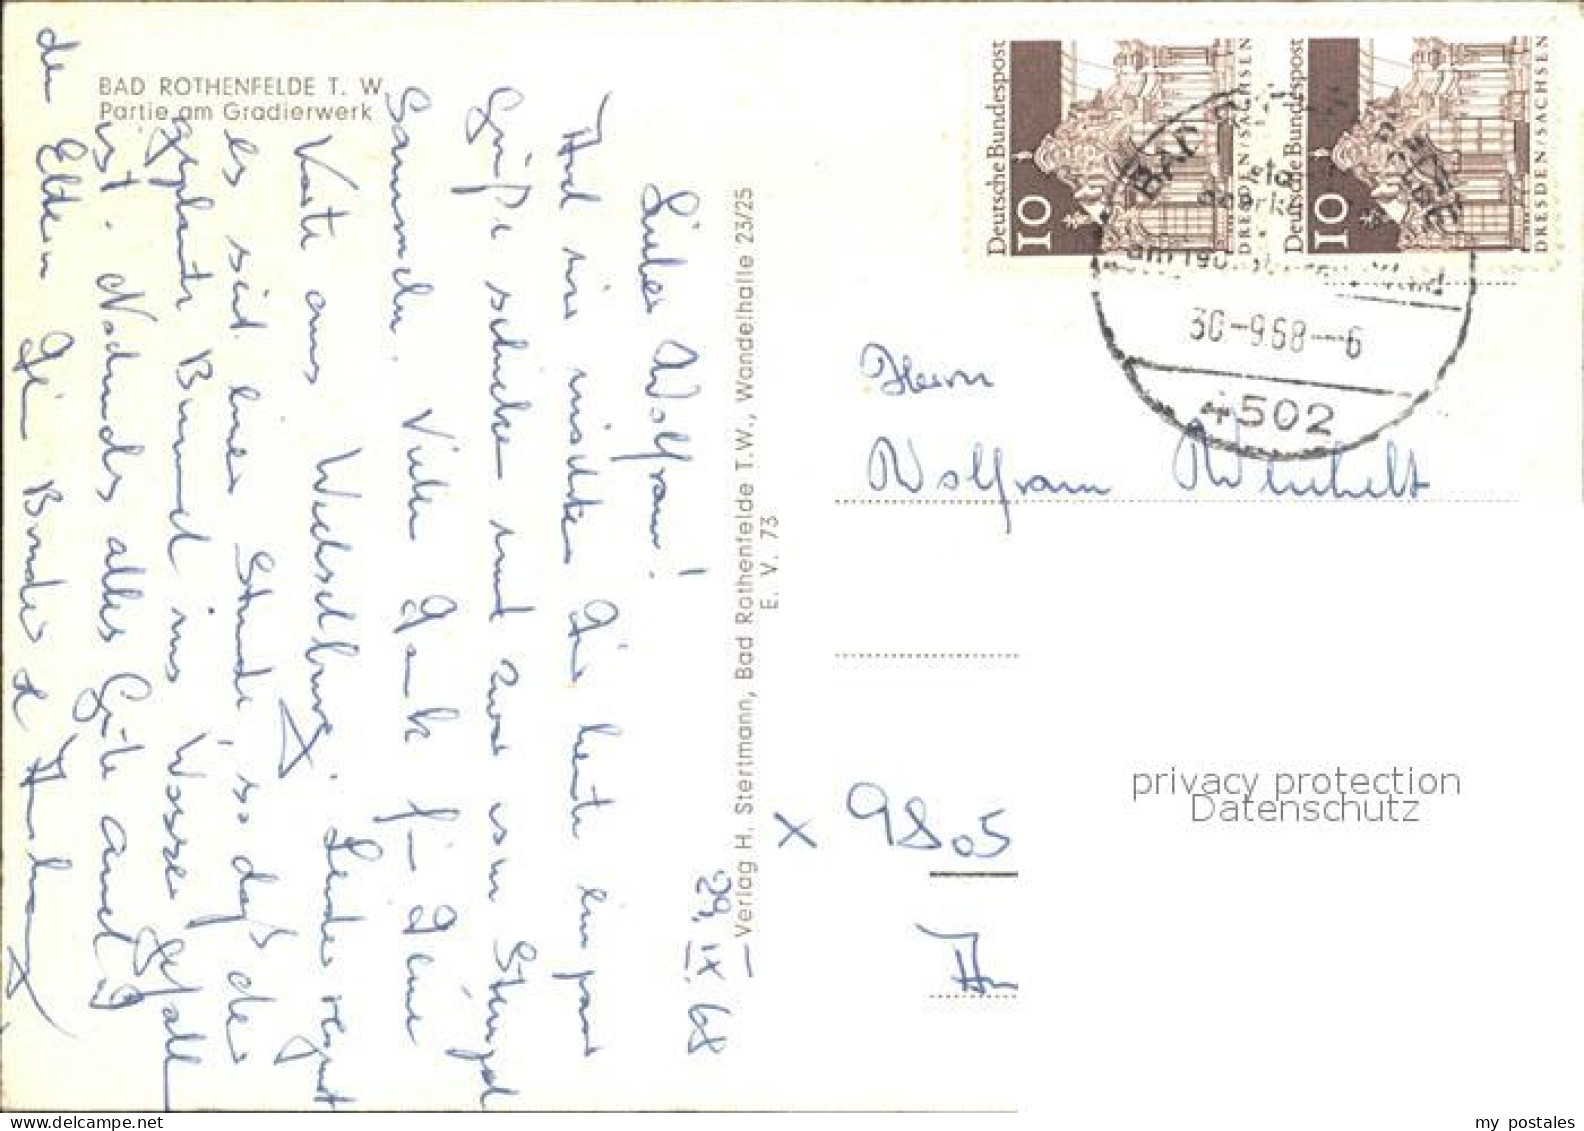 BAD ROTHENFELDE T. W.
Partie am Gradierwerk
29. IX. 68
Lieber Wolfram!
Und wir möchten Dir heute ein paar
Grüße schicken und zwar zum Stempel
Sammeln. Vielen Dank für Deine
Karte aus Wechselburg. Leider regnet
es seit einer Stunde, so daß der
geplante Bummel ins Wasser gefallen
ist. Nochmals alles Gute auch
den Eltern
Verlag H. Stertmann, Bad Rothenfelde T.W., Wandelhalle 23/25
E. V. 73
Deutsche Bundespost
10
DRESDEN/SACHSEN
Deutsche Bundespost
10
DRESDEN/SACHSEN
BAD
am
30-9.68--6
4502
Herrn
Wolfram
x 9805
privacy protection
Datenschutz
my postales
www.delcampe.net